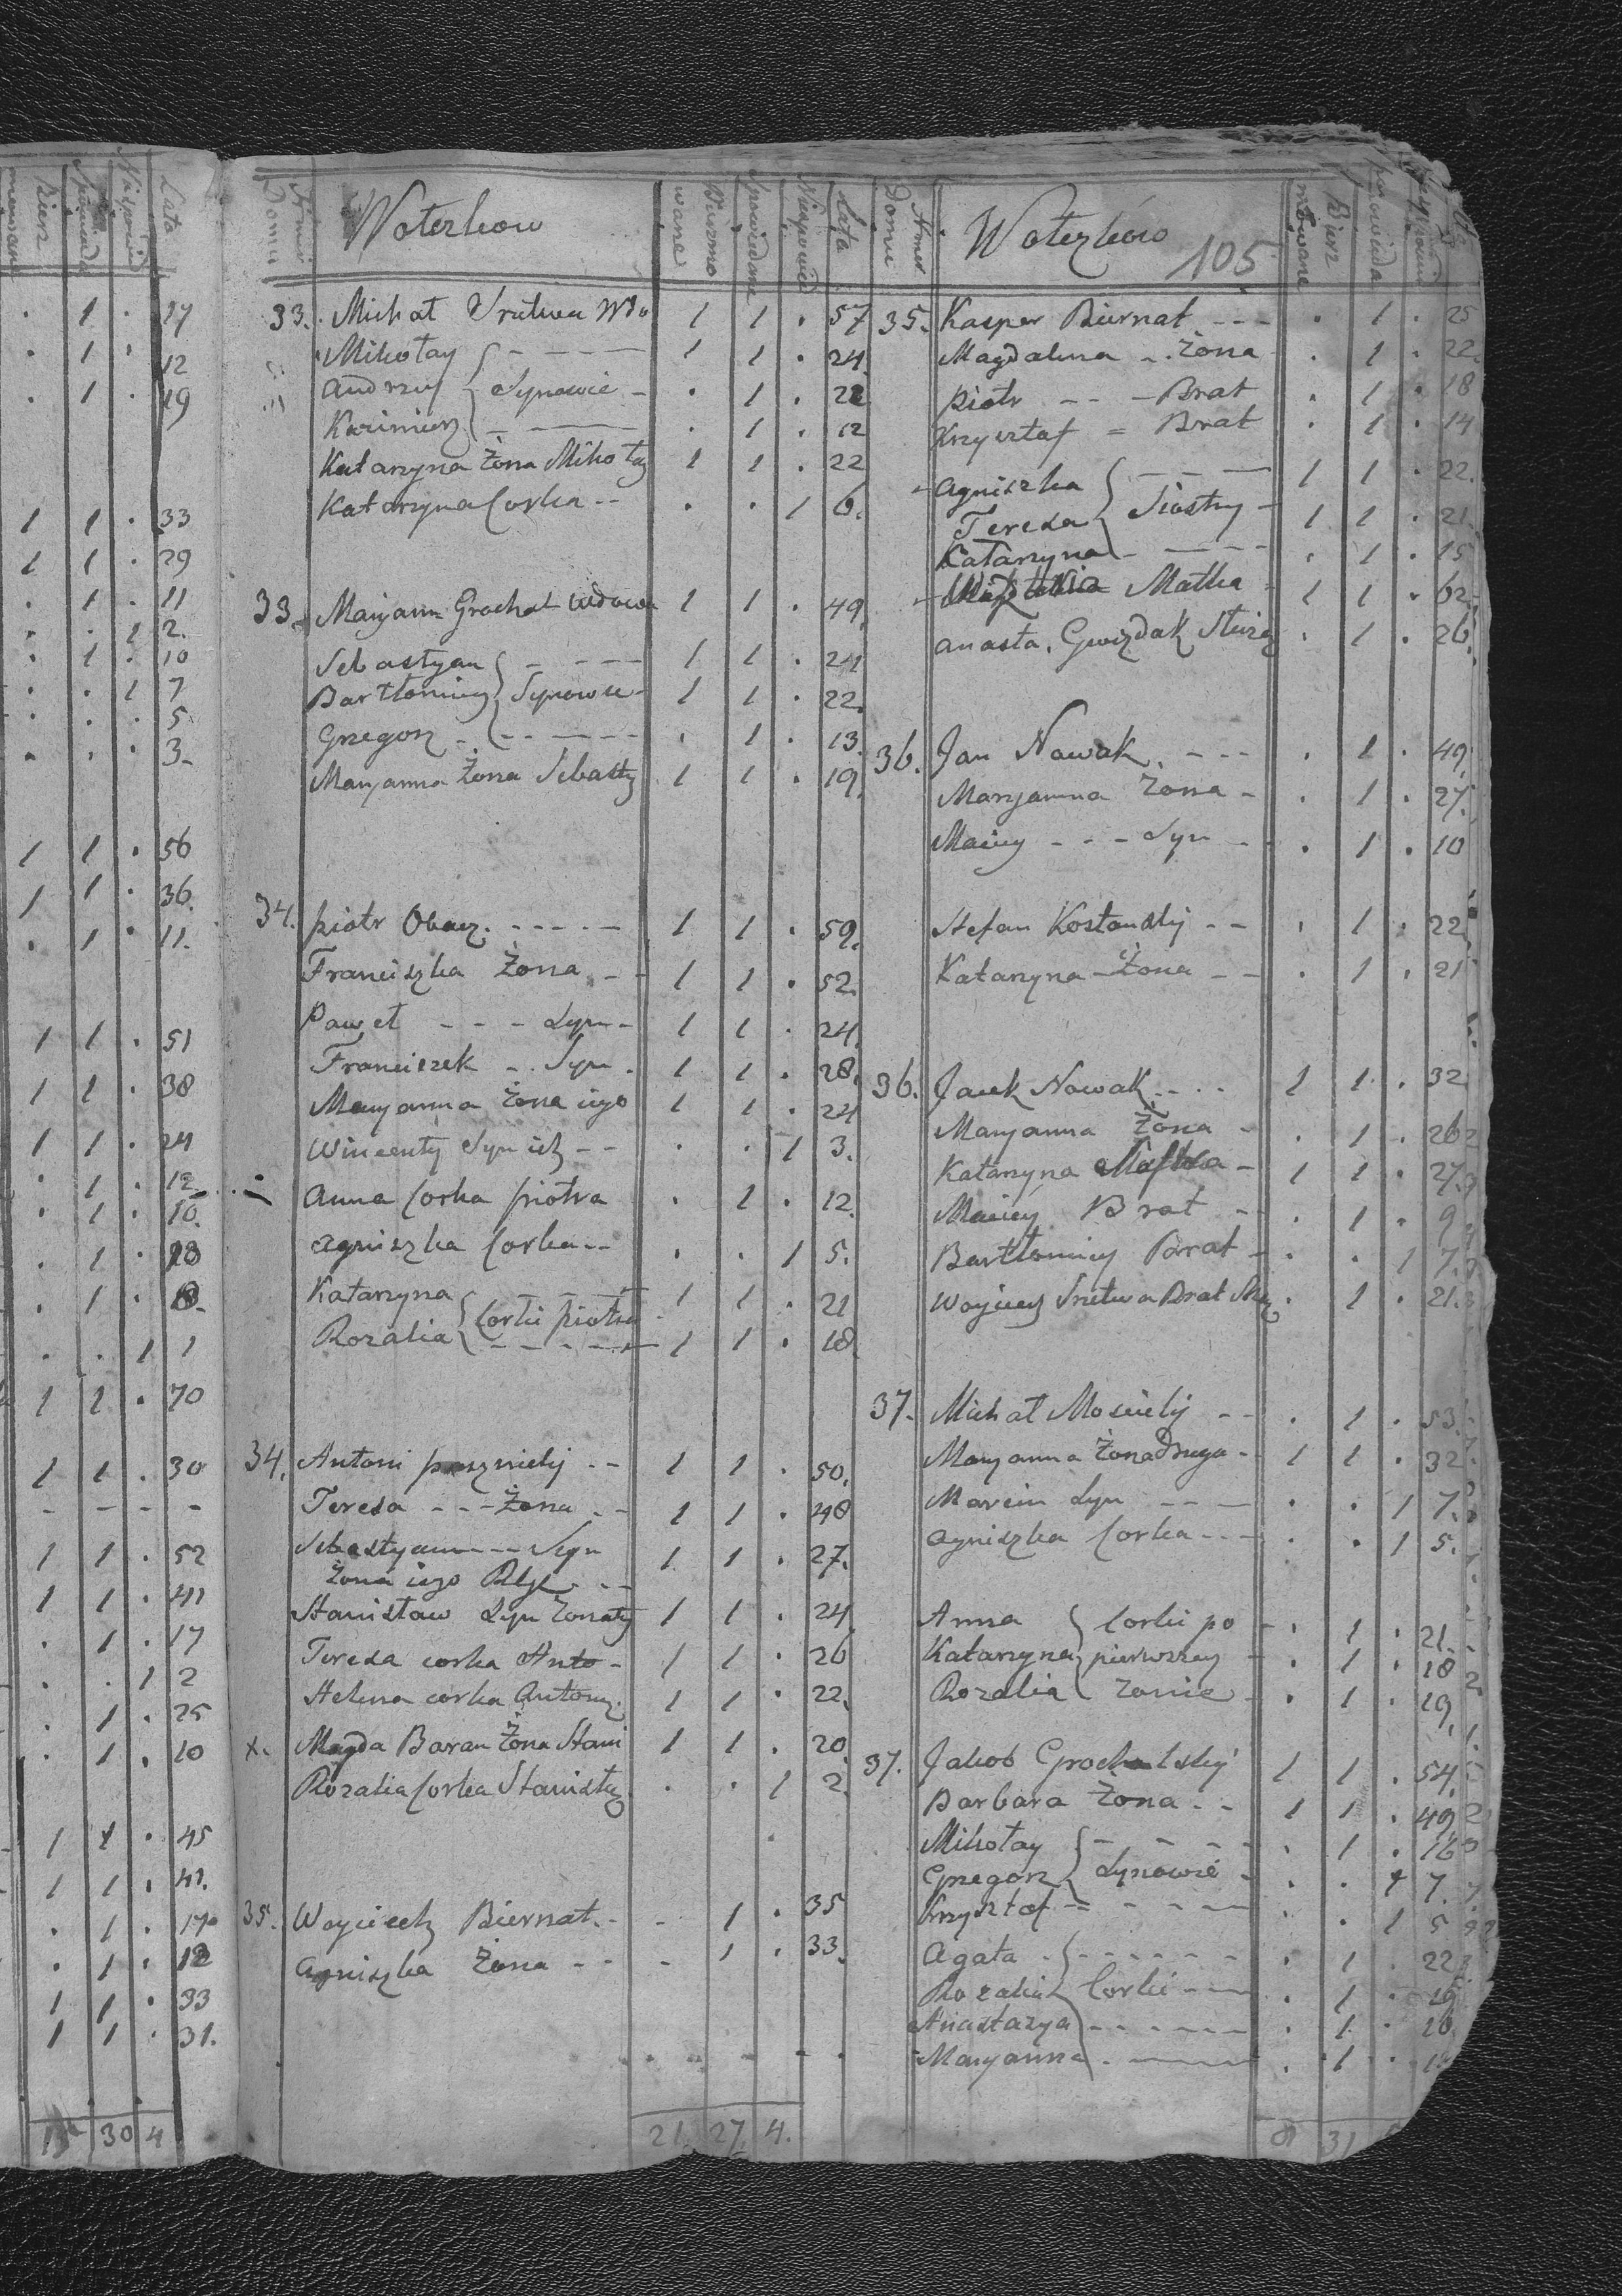 Lata
17
12
19
1 1 . 33
1 1 . 29
. 1 . 11
. . 1 2.
. 1 . 10
. . 1 7
. . . 5
. . . 3
1 1 . 56
1 1 . 36.
. 1 . 11.
1 1 . 51
1 1 . 38
1 1 . 24
. 1 . 12
. 1 . 10.
. 1 .
. 1 .
. . 1 1
1 1 . 70
1 1 . 30
- - - -
1 1 . 52
1 1 . 41
. 1 . 17
. . 1 2
. 1 . 25
. 1 . 10
1 1 . 45
1 1 . 41.
. 1 . 17
. 1 . 12
1 1 . 33
1 1 . 31.
30 4
Numer Domu
Woterkow
Bierzmowane
Spowiedane
Niespowied
Lata
33. Michał Sretwa Wdo 1 1 . 57
Mikołay - - - 1 1 . 24
Andrzey Synowie - . 1 . 22
Kazimierz - . 1 . 12
Katarzyna Żona Mikołay 1 1 . 22
Katarzyna Corka -- . . 1 6.
33. Maryann Grochal wdowa 1 1 . 49.
Sebastyan - - - 1 1 . 24
Bartłomiey Synowie - 1 1 . 22.
Grzegorz - - - . 1 . 13.
Maryanna Żona Sebasty 1 1 . 19.
34. piotr - - - - - 1 1 . 59.
Franciszka Żona - - 1 1 . 52.
Paweł - - - Syn - 1 1 . 24.
Franciszek - . Syn . 1 1 . 28.
Maryanna Żona iego 1 1 . 24
Wincenty Syn ich - - . . 1 3.
Anna Corka piotra . 1 . 12.
Agniszka Corka -- . . 1 5.
Katarzyna 1 1 . 21
Rozalia Corki piotra 1 1 . 18
34. Antoni -- 1 1 . 50.
Teresa - - - Żona - - 1 1 . 48
Sebastyan - - - Syn 1 1 . 27.
Żona iego - -
Stanisław Syn Żonaty 1 1 . 24
Teresa corka Anto - 1 1 . 26
Helena corka Antony. 1 1 . 22.
x. Magda Baran Żona Stani 1 1 . 20.
Rozalia Corka Stanisła . . 1 2.
35. Woyciech Biernat - - - 1 . 35
Agniszka Żona - - - 1 . 33.
21. 27 4.
Numer Domu
Woterków
105
Bierz mowane
35. Kasper Biernat - - - . 1 . 25
Magdalena - . Żona . 1 . 22.
piotr - - - Brat . 1 . 18
Krzysztof = Brat . 1 . 14
Agniszka - - - 1 1 . 22.
Teresa Siostry - 1 1 . 21.
Katarzyna - - - . 1 . 15
Matka 1 1 . 62
Anasta. Gwizdak . 1 . 26.
36. Jan Nowak - - - . 1 . 49.
Maryanna Żona - . 1 . 27.
Maciey - - - Syn - . 1 . 10
Stefan - - . 1 . 22
Katarzyna - Żona - - . 1 . 21
36. Jacek Nowak - . . 1 1 . 32
Maryanna Żona - . 1 . 26
Katarzyna - 1 1 . 27.
Maciey Brat - . 1 . 9
Bartłomiey Brat - . . 1 7.
Woyciech Sretwa Brat . 1 . 21.
37. Michał - - . 1 . 53.
Maryanna Żona druga - 1 1 . 32
Marcin Syn - - - . . 1 7.
Agniszka Corka - - - . . 1 5.
Anna Corki po - . 1 . 21.
Katarzyna pierwszey - . 1 . 18
Rozalia Żonie . 1 . 19,
37. Jakob Grochalskij 1 1 . 54.
Barbara Żona - - 1 1 . 49.
Mikołay - - - . 1 . 16
Grzegorz Synowie . . 1 7.
Krzysztof = - - - . . 1 5
Agata - - - - . 1 . 22
Rozalia Corki - - - . 1 .
Anastazya - - - - . 1 .
Maryanna - - - . 1 .
31